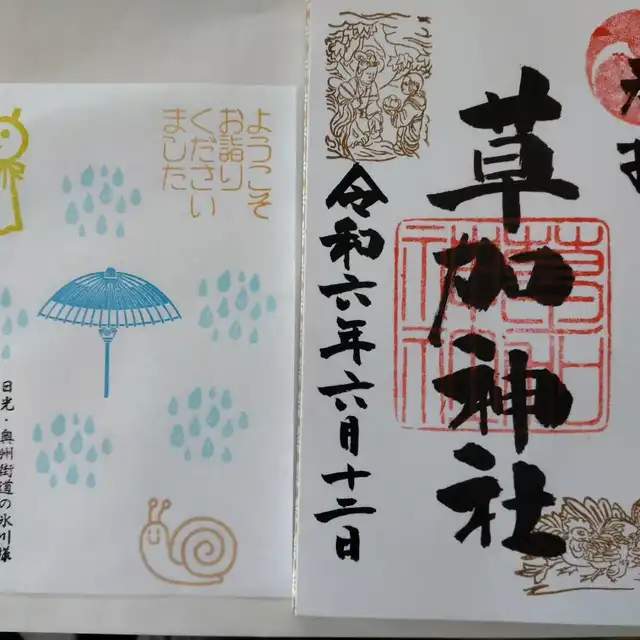 草加神社
令和六年六月十二日
ようこそ
お詣り
ください
ました
日光・奥州街道の氷川様